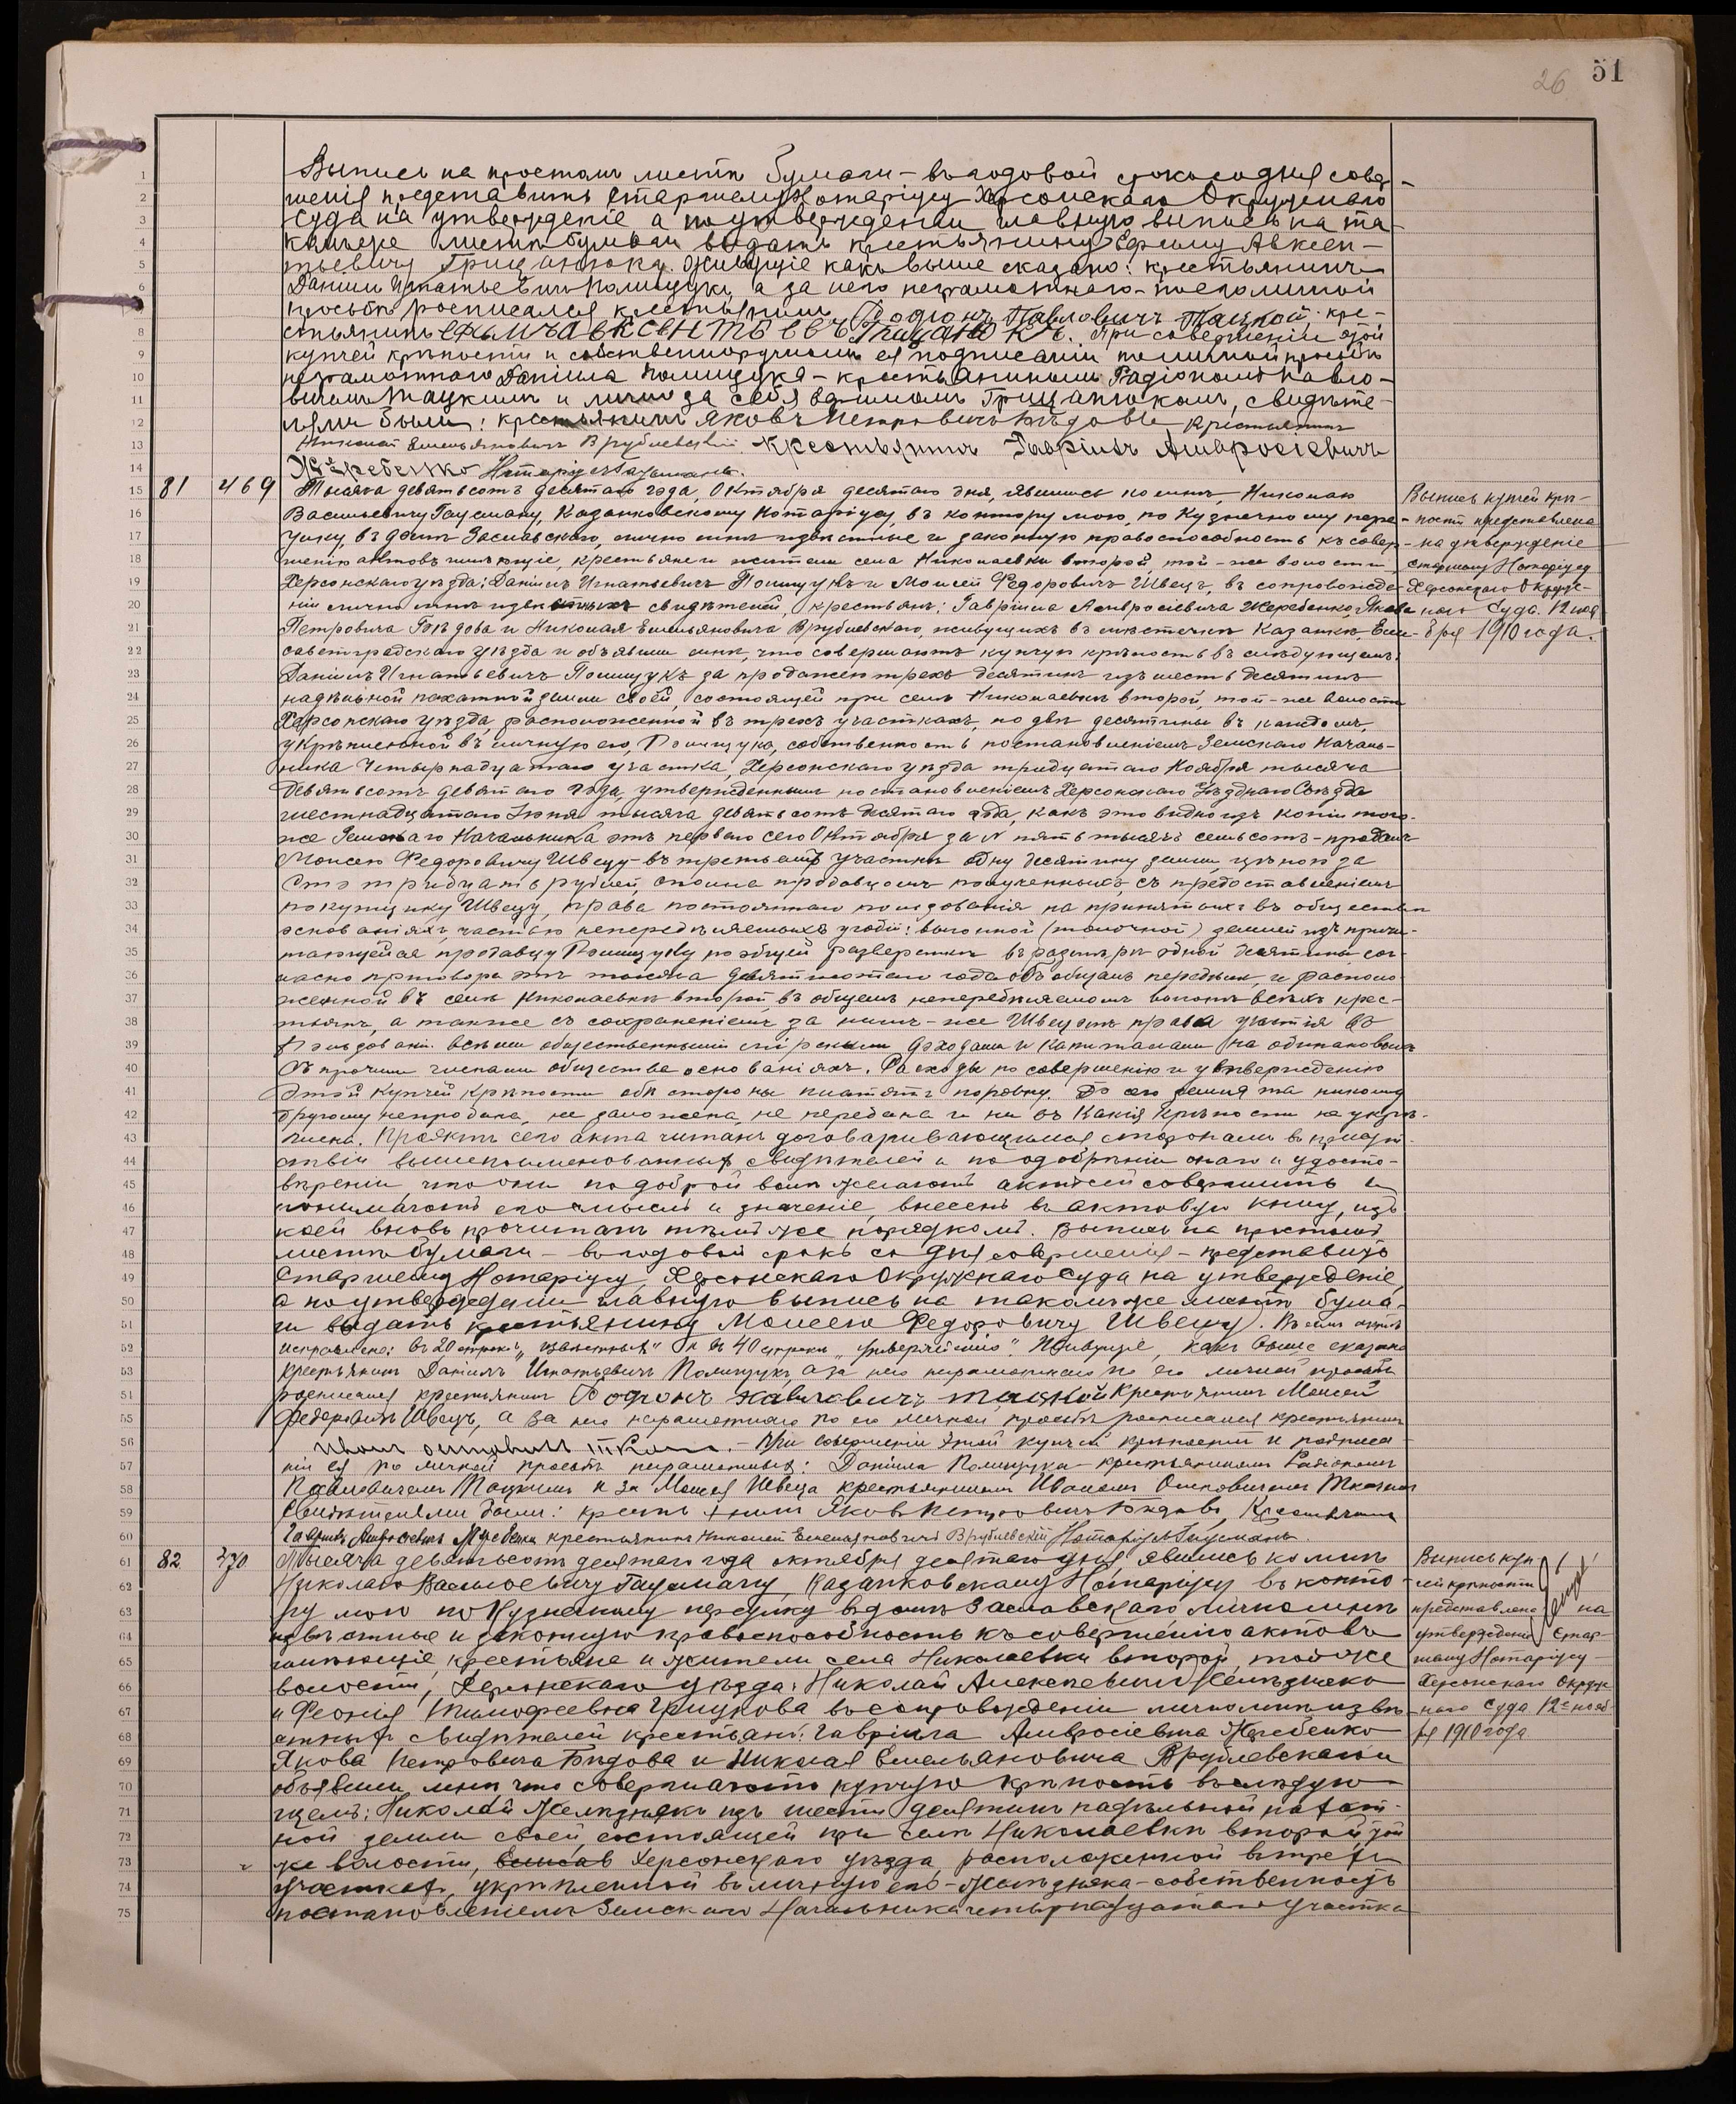 26 51
Выпись на простомъ листѣ бумаги – въ годовой срокъ со дня совер-
шенія представить Старшему Нотаріусу Херсонскаго Окружнаго
Суда на утвержденіе а по утвержденіи главную выпись на та-
комъ же листѣ бумаги выдать крестьянину Ефиму Авксен-
тьевичу Грицанюку. Живущіе какъ выше сказано: крестьянинъ
Даніилъ Игнатьевичъ Полищукъ, а за него неграмотнаго – по его личной
просьбѣ росписался крестьянинъ Родіонъ Павловичъ Тацкой, кре-
стьянинъ Ефимъ Авксентьевичъ Грицанюкъ. При совершеніи этой
купчей крѣпости и собственноручномъ ея подписаніи по личной просьбѣ
неграмотнаго Даніила Полищука – крестьяниномъ Радіономъ Павло-
вичемъ Тацкимъ и лично за себя Ефимомъ Грицанюкомъ, свидѣте-
лями были: крестьянинъ Яковъ Петровичъ Бѣдовъ крестьянинъ
Николай Емельяновичъ Врублевскій крестьянинъ Гавріилъ Амвросіевичъ
Жеребенко Нотаріусъ Гаусманъ.
81 469 Тысяча девятьсотъ десятаго года, Октября десятаго дня, явились ко мнѣ, Николаю
Васильевичу Гаусману, Казанковскому Нотаріусу, въ контору мою, по Кузнечному пере-
улку, въ домѣ Заславскаго, лично мнѣ извѣстные и законную правоспособность къ совер-
шенію актовъ имѣющіе, крестьяне и жители села Николаевки второй, той-же волости,
Херсонскаго уѣзда: Даніилъ Игнатьевичъ Полищукъ и Моисей Федоровичъ Швецъ, въ сопровожде-
ніи лично мнѣ извѣстныхъ свидѣтелей, крестьянъ: Гавріила Амвросіевича Жеребенко, Якова
Петровича Бѣдова и Николая Емельяновича Врублевскаго, живущихъ въ мѣстечкѣ Казанкѣ, Ели-
саветградскаго уѣзда и объявили мнѣ, что совершаютъ купчую крѣпость въ слѣдующемъ:
Даніилъ Игнатьевичъ Полищукъ за продажею трехъ десятинъ изъ шести десятинъ
надѣльной пахатной земли своей, состоящей при селѣ Николаевкѣ второй, той-же волости
Херсонскаго уѣзда, расположенной въ трехъ участкахъ, по двѣ десятины въ каждомъ,
укрѣпленной въ личную его, Полищука, собственность постановленіемъ Земскаго Началь-
ника Четырнадцатаго участка, Херсонскаго уѣзда тридцатаго Ноября тысяча
девятьсотъ девятаго года, утвержденнымъ постановленіемъ Херсонскаго Уѣзднаго Съѣзда
шестнадцатаго Іюня тысяча девятьсотъ десятаго года, какъ это видно изъ копіи того-
же Земскаго Начальника отъ перваго сего Октября за № пять тысячъ семьсотъ – продалъ
Моисею Федоровичу Швецу – въ третьемъ участкѣ одну десятину земли, цѣною за
сто тридцать рублей, сполна продавцомъ полученныхъ, съ предоставленіемъ
покупщику Швецу, права постояннаго пользованія на принятыхъ въ обществѣ
основаніяхъ, частью непередѣляемыхъ угодій: выгонной (толочной) землей изъ причи-
тающейся продавцу Полищуку по общей разверсткѣ въ размѣрѣ одной десятины сог-
ласно приговора отъ тысяча девятисотаго года объ общемъ передѣлѣ, и располо-
женной въ селѣ Николаевкѣ второй, въ общемъ непередѣляемомъ выгонѣ всѣхъ крес-
тьянъ, а также съ сохраненіемъ за нимъ-же Швецомъ права участія въ
пользованіи всѣми общественными мірскими доходами и капиталами на одинаковыхъ
съ прочими членами общества основаніяхъ. Расходы по совершенію и утвержденію
этой купчей крѣпости обѣ стороны платятъ поровну. До сего земля та никому
другому непродана, не заложена, не передана и ни въ какія крѣпости не укрѣ-
плена. Проэктъ сего акта читанъ договаривающимся сторонамъ въ присут-
ствіи вышепоименованныхъ свидѣтелей и по одобреніи онаго и удосто-
вѣреніи, что они по доброй волѣ желаютъ актъ сей совершить и
понимаютъ его смыслъ и значеніе, внесенъ въ актовую книгу, изъ
коей вновь прочитанъ тѣмъ же порядкомъ. Выпись на простомъ
листѣ бумаги – въ годовой срокъ со дня совершенія – представить
Старшему Нотаріусу Херсонскаго Окружнаго Суда на утвержденіе,
а по утвержденіи главную выпись на такомъ же листѣ бума-
ги выдать крестьянину Моисею Федоровичу Швецу. Въ семъ актѣ
исправлено: въ 20 строкѣ „извѣстныхъ“ и въ 40 строкѣ „утвержденію“. Живущіе, какъ выше сказано
крестьянинъ Даніилъ Игнатьевичъ Полищукъ, а за него неграмотнаго по его личной просьбѣ
росписался крестьянинъ Родіонъ Павловичъ Тацкой крестьянинъ Моисей
Федоровичъ Швецъ, а за него неграмотнаго по его личной просьбѣ росписался крестьянинъ
Иванъ – При совершеніи этой купчей крѣпости и подписа-
ніи ея по личной просьбѣ неграмотныхъ: Даніила Полищука крестьяниномъ Радіономъ
Павловичемъ Тацкимъ и за Моисея Швеца крестьяниномъ Иваномъ Осиповичемъ Ткачемъ
свидѣтелями были: крестьянинъ Яковъ Петровичъ Бѣдовъ, Крестьянинъ
Гавріилъ Амвросіевичъ Жеребенко крестьянинъ Николай Емельяновичъ Врублевскій Нотаріусъ Гаусманъ.
Выпись купчей крѣ-
пости представлена
на утвержденіе
Старшему Нотаріусу
Херсонскаго Окруж-
наго Суда. 12 ноя-
бря 1910 года.
82 470 Тысяча девятьсотъ десятаго года октября десятаго дня явились ко мнѣ
Николаю Васильевичу Гаусману, Казанковскому Нотаріусу въ конто-
ру мою по Кузнечному переулку въ домѣ Заславскаго лично мнѣ
извѣстные и законную правоспособность къ совершенію актовъ
имѣющіе, крестьяне и жители села Николаевки второй, той же
волости, Херсонскаго уѣзда: Николай Алексѣевичъ Желѣзняко
и Феонія Тимофеевна Грицукова въ сопровожденіи лично мнѣ извѣ-
стныхъ свидѣтелей крестьянъ: Гавріила Амвросіевича Жеребенко
Якова Петровича Бѣдова и Николая Емельяновича Врублевскаго и
объявили мнѣ что совершаютъ купчую крѣпость въ слѣдую-
щемъ: Николай Желѣзнякъ изъ шести десятинъ надѣльной пахат-
ной земли своей, состоящей при селѣ Николаевкѣ второй, той
же волости, Херсонскаго уѣзда, расположенной въ трехъ
участкахъ, укрѣпленной въ личную его – Желѣзняка – собственность
постановленіемъ Земскаго Начальника четырнадцатаго участка
Выпись куп-
чей крѣпости
представлена на
утвержденіе Стар-
шему Нотаріусу
Херсонскаго Окруж-
наго Суда 12 нояб-
ря 1910 года
1
2
3
4
5
6
7
8
9
10
11
12
13
14
15
16
17
18
19
20
21
22
23
24
25
26
27
28
29
30
31
32
33
34
35
36
37
38
39
40
41
42
43
44
45
46
47
48
49
50
51
52
53
51
55
56
57
58
59
60
61
62
63
64
65
66
67
68
69
70
71
72
73
74
75